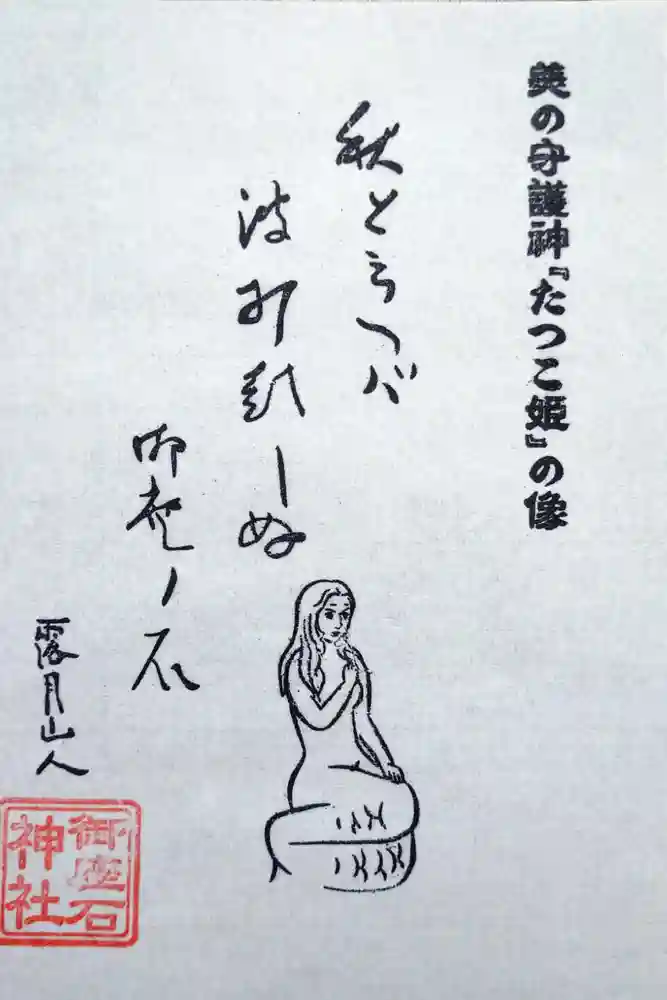 美の守護神『たつこ姫』の像
秋と云へバ
波しぬ
御座ノ石
露月山人
御座石
神社